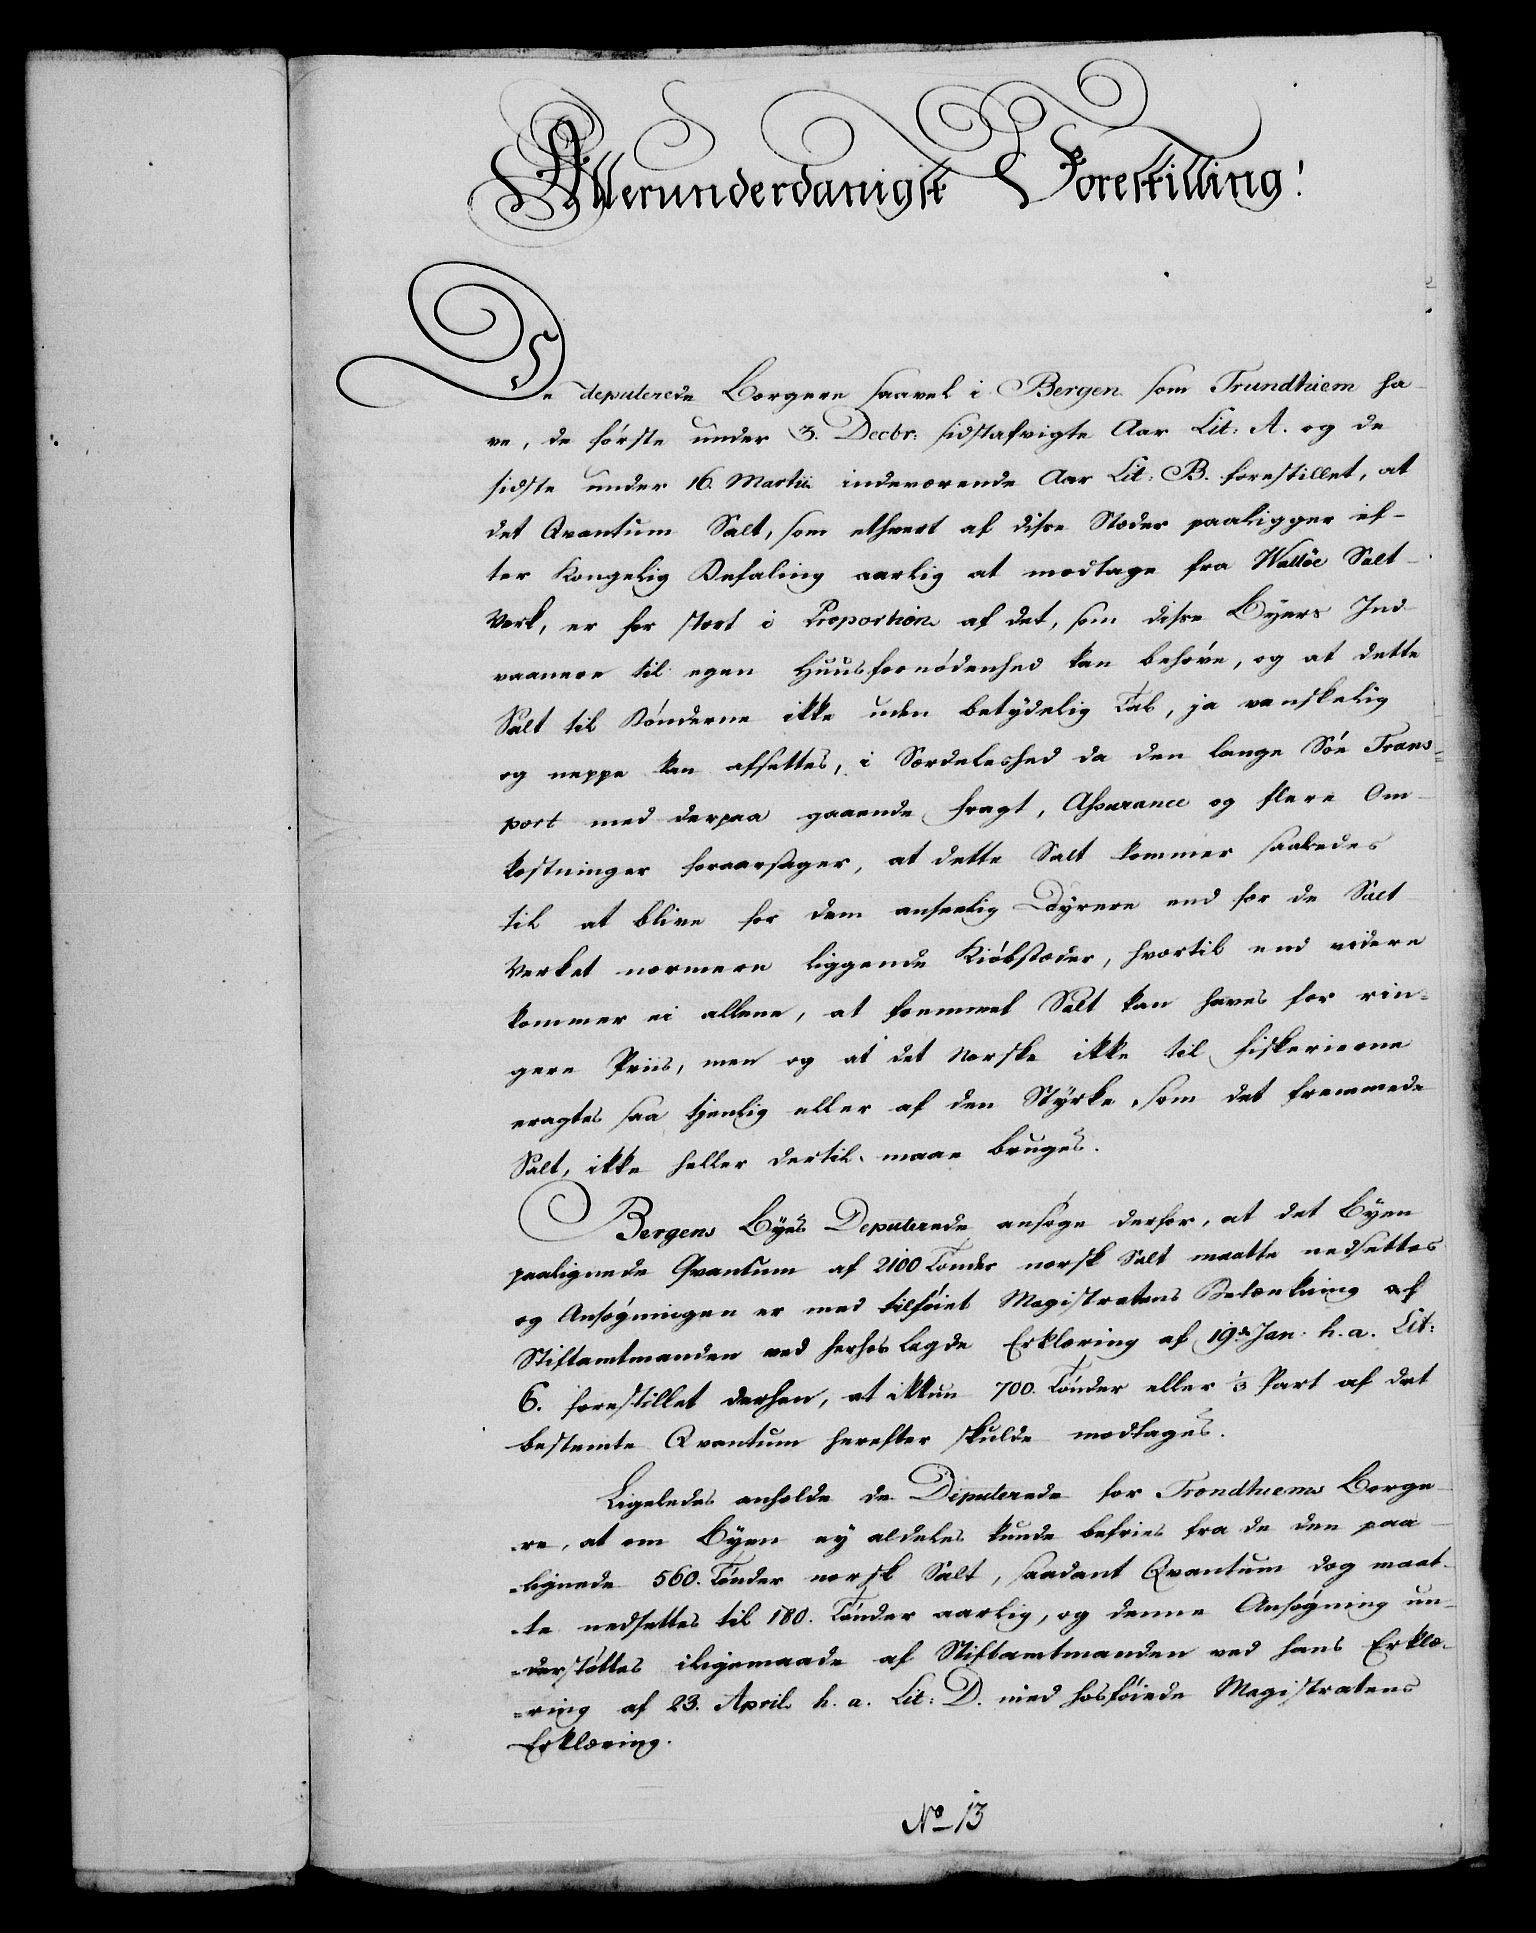 Allerunderdanigst Forestilling!
De deputerede Borgere saavel i Bergen som Trundhiem ha-
ve, de første under 3. Decbr: sidstafvigte Aar Lit: A. og de
sidste under 16. Martii indeværende Aar Lit: B. forestillet, at
det Qvantum Salt, som ethvert af disse Stæder paaligger ef-
ter Kongelig Befaling aarlig at modtage fra Walløe Salt-
Verk, er for stort i Proportion af det, som disse Byers Ind-
vaanere til egen Huusfornødenhed kan behøve, og at dette
Salt til Bønderne ikke uden betydelig Tab, ja vanskelig
og neppe kan afsættes, i Særdeleshed da den lange Søe Trans-
port med derpaa gaaende Fragt, Assurance og flere Om-
kostninger foraarsager, at dette Salt kommer saaledes
til at blive for dem anseelig Dyrere end for de Salt
Verket nærmere liggende Kiøbstæder, hvortil end videre
kommer ei allene, at fremmet Salt kan haves for rin-
gere Priis, men og at det Norske ikke til Fiskerierne
eragtes saa tjenlig eller af den Styrke, som det fremmede
Salt, ikke heller dertil maae bruges.
Bergens Byes Deputerede ansøge derfor, at det Byen
paalignede Qvantum af 2100 Tønder norsk Salt maatte nedsættes
og Ansøgningen er med tilføiet Magistratens Betænkning af
Stiftamtmanden ved herhos lagde Erklæring af 19de Jan: h. a. Lit:
C. forestillet derhen, at ikkun 700. Tønder eller 1/3 Part af det
bestemte Qvantum herefter skulde modtages.
Ligeledes anholde de Deputerede for Trondhiems Borge-
re, at om Byen ey aldeles kunde befries fra de den paa-
lignede 560. Tønder norsk Salt, saadant Qvantum dog maat-
te nedsættes til 180. Tønder aarlig, og denne Ansøgning un-
derstøttes iligemaade af Stiftamtmanden ved hans Erklæ-
ring af 23. April h. a. Lit: D. med hosføiede Magistratens
Erklæring.
No 13